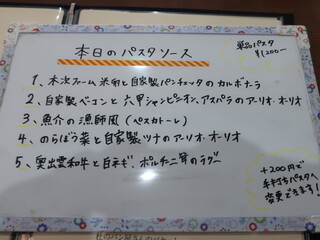 本日のパスタソース
単品パスタ
¥1,200-
1、木次ファーム 米卵と自家製パンチェッタのカルボナーラ
2、自家製ベーコンと六甲シャンピニオン、アスパラのアーリオ・オーリオ
3、魚介の漁師風（ペスカトーレ）
4、のらぼう菜と自家製ツナのアーリオ・オーリオ
5、奥出雲和牛と白ネギ、ポルチーニ茸のラグー
+200円で
手打ちパスタへ
変更できます！